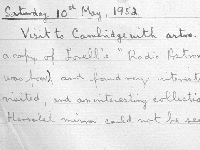 Saturday 10th May, 1952
Visit to Cambridge with astro.
a copy of Lovell's "Radio Astron
was and found very interest
visited, and an interesting collectio
Herschel mirror could not be see